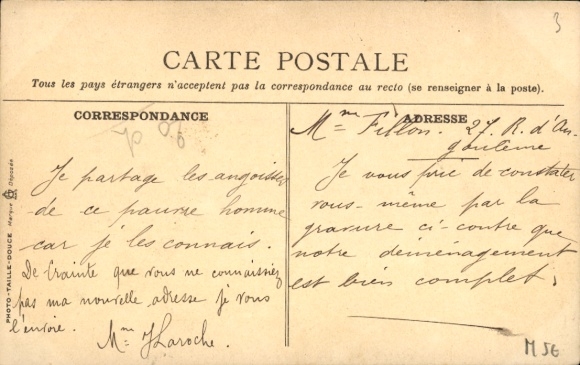 3
CARTE POSTALE
Tous les pays étrangers n'acceptent pas la correspondance au recto (se renseigner à la poste).
CORRESPONDANCE
Je partage les angoisses
de ce pauvre homme
car je les connais.
De Crainte que vous ne connaissiez
pas ma nouvelle adresse je vous
l'envoie.
Mme JLaroche.
ADRESSE
Mme Fillon. 27. R. d'An-
goulème
Je vous prie de constater
vous-même par la
gravure ci-contre que
notre déménagement
est bien complet.
PHOTO-TAILLE-DOUCE Marque Déposée
M 56